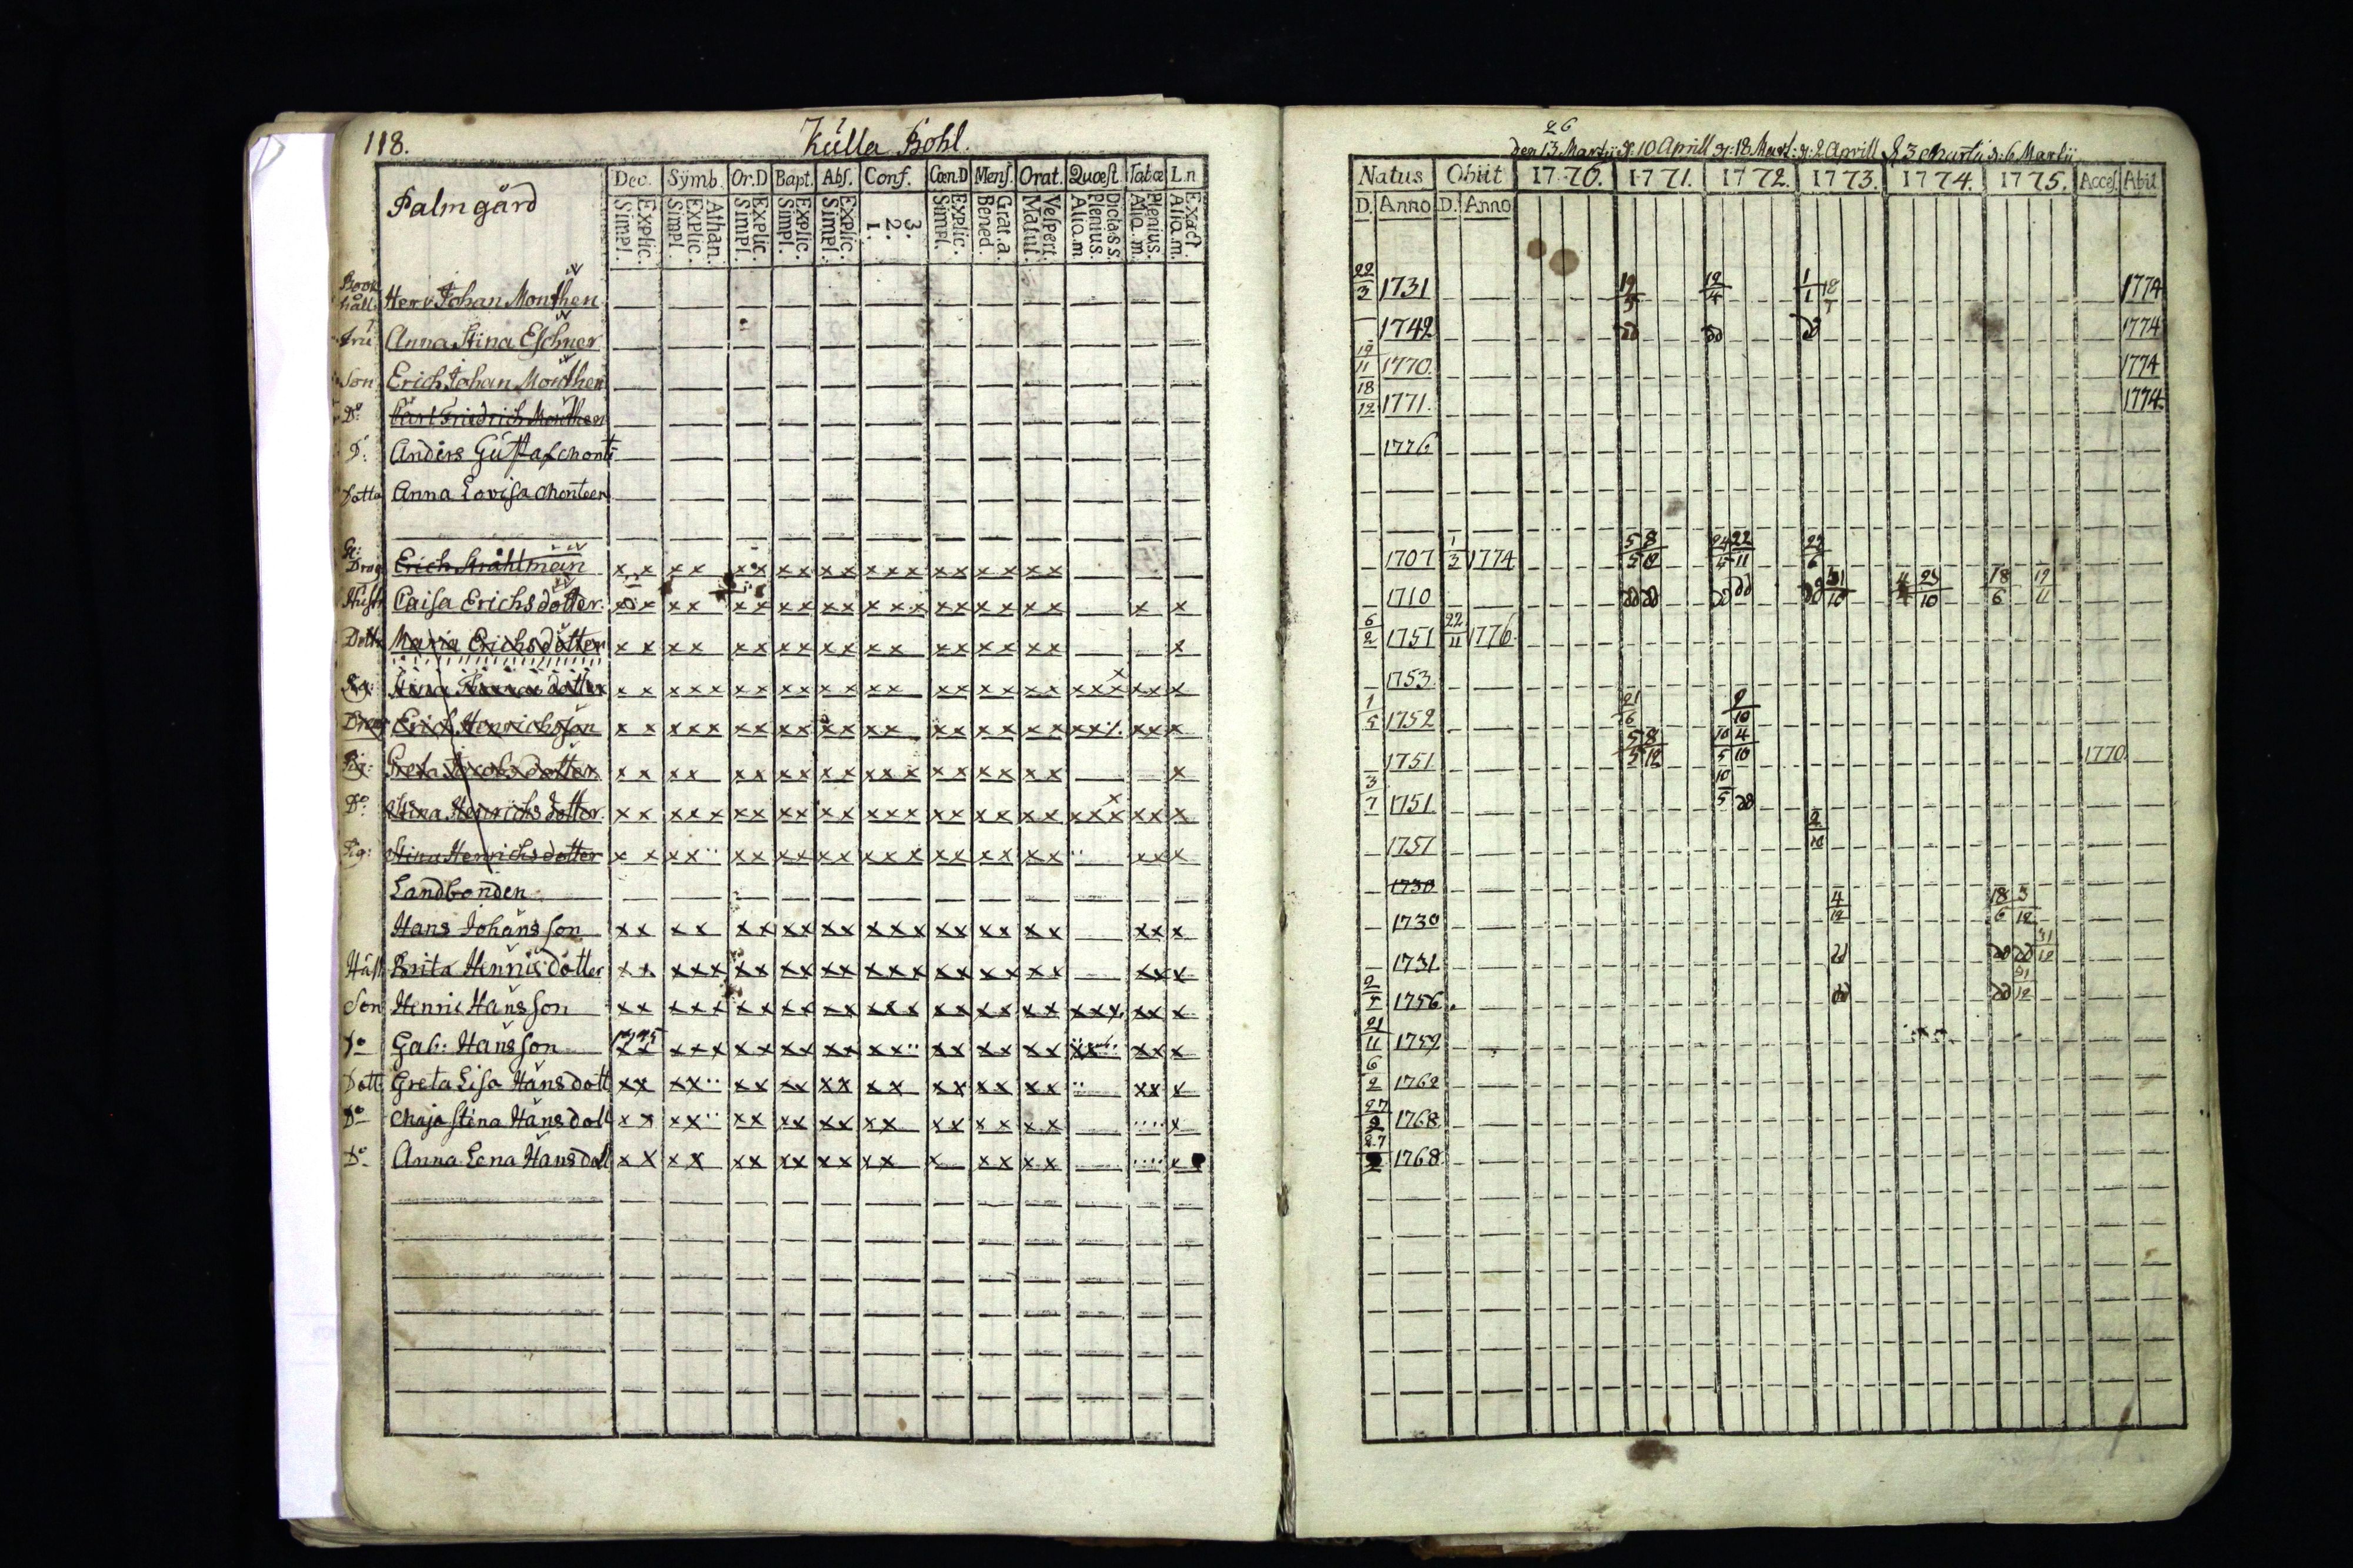 118.
Kulla Bohl.
Palmgård
Dec. Symb. Or.D Bapt. Abs. Conf. Cœn.D Mens. Orat. Quæst. Tabæ L.n
Explic. Simpl. Athan. Explic. Simpl. Explic. Simpl. Explic. Simpl. Explic. Simpl. 3. 2. 1. Explic. Simpl. Grat. a. Bened. Vespert. Matut. Dicta S.S. Plenius Aliq.m Plenius. Aliq.m Exact. Aliq.m.
Bookhåll: Herr Johan Monthen
Fru Anna Stina Eschner
Son Erich Johan Monthen
Do Carl Friedrich Montheen
Do Anders Gustaf Mont
Dotte Anna Lovisa Monteen
Drag Erich Stråhlman x x x x x x x x x x x x x x x x x x x
Hustr Caisa Erichsdotter x x x x x x x x x x x x x x x x x x x x x
Dotte Maria Erichsdotter x x x x x x x x x x x x x x x x x x x
Stina dotter x x x x x x x x x x x x x x x x x x x x x x x x x x
Drag Erich Henrichsson x x x x x x x x x x x x x x x x x x x x x x x x
Pig: Greta Jacobsdotter x x x x x x x x x x x x x x x x x x x x
Do Stina Henrichsdotter x x x x x x x x x x x x x x x x x x x x x x x x x x x
Pig: Stina Henrichsdotter x x x x x x x x x x x x x x x x x x x x x x
Landbonden
Hans Johansson x x x x x x x x x x x x x x x x x x x x x x
Hust Brita Henricsdotter x x x x x x x x x x x x x x x x x x x x x x x
Son Henric Hansson x x x x x x x x x x x x x x x x x x x x x x x x x
Do Gab: Hansson x x x x x x x x x x x x x x x x x x x x x x x
Dott Greta Lisa Hansdott x x x x x x x x x x x x x x x x x x x x x
Do Maja Stina Hansdott x x x x x x x x x x x x x x x x x x x
Do Anna Lena Hansdott x x x x x x x x x x x x x x x x x x
26
den 13 Martii d: 10 Aprill d: 18 Mart: d: 2 Aprill d 3 Martii d: 6 Martii
Natus Obiit 1770. 1771. 1772. 1773. 1774. 1775. Acces. Abit
D. Anno D. Anno
22/3 1731 19/5 12/4 1/1 18 1774
1742 do do do 1774
19/11 1770. 1774
18/12 1771. 1774.
1776
1707 1/3 1774 5/5 8/12 24/5 22/11 22/6
1710 do do do do do 31/10 23/10 18/6 19/11
6/2 1751 22/11 1776.
1753
1/5 1752 21/6 9/10
1751 5/5 8/12 10/5 4/10 1770.
3/7 1751. 10/5 do
1757 2/10
1730
1730 4/12 18/6 3/12
1731 do do do 31/12
2/5 1756. do do 31/12
21/11 1759
6/2 1762
27/9 1768.
27 1768.